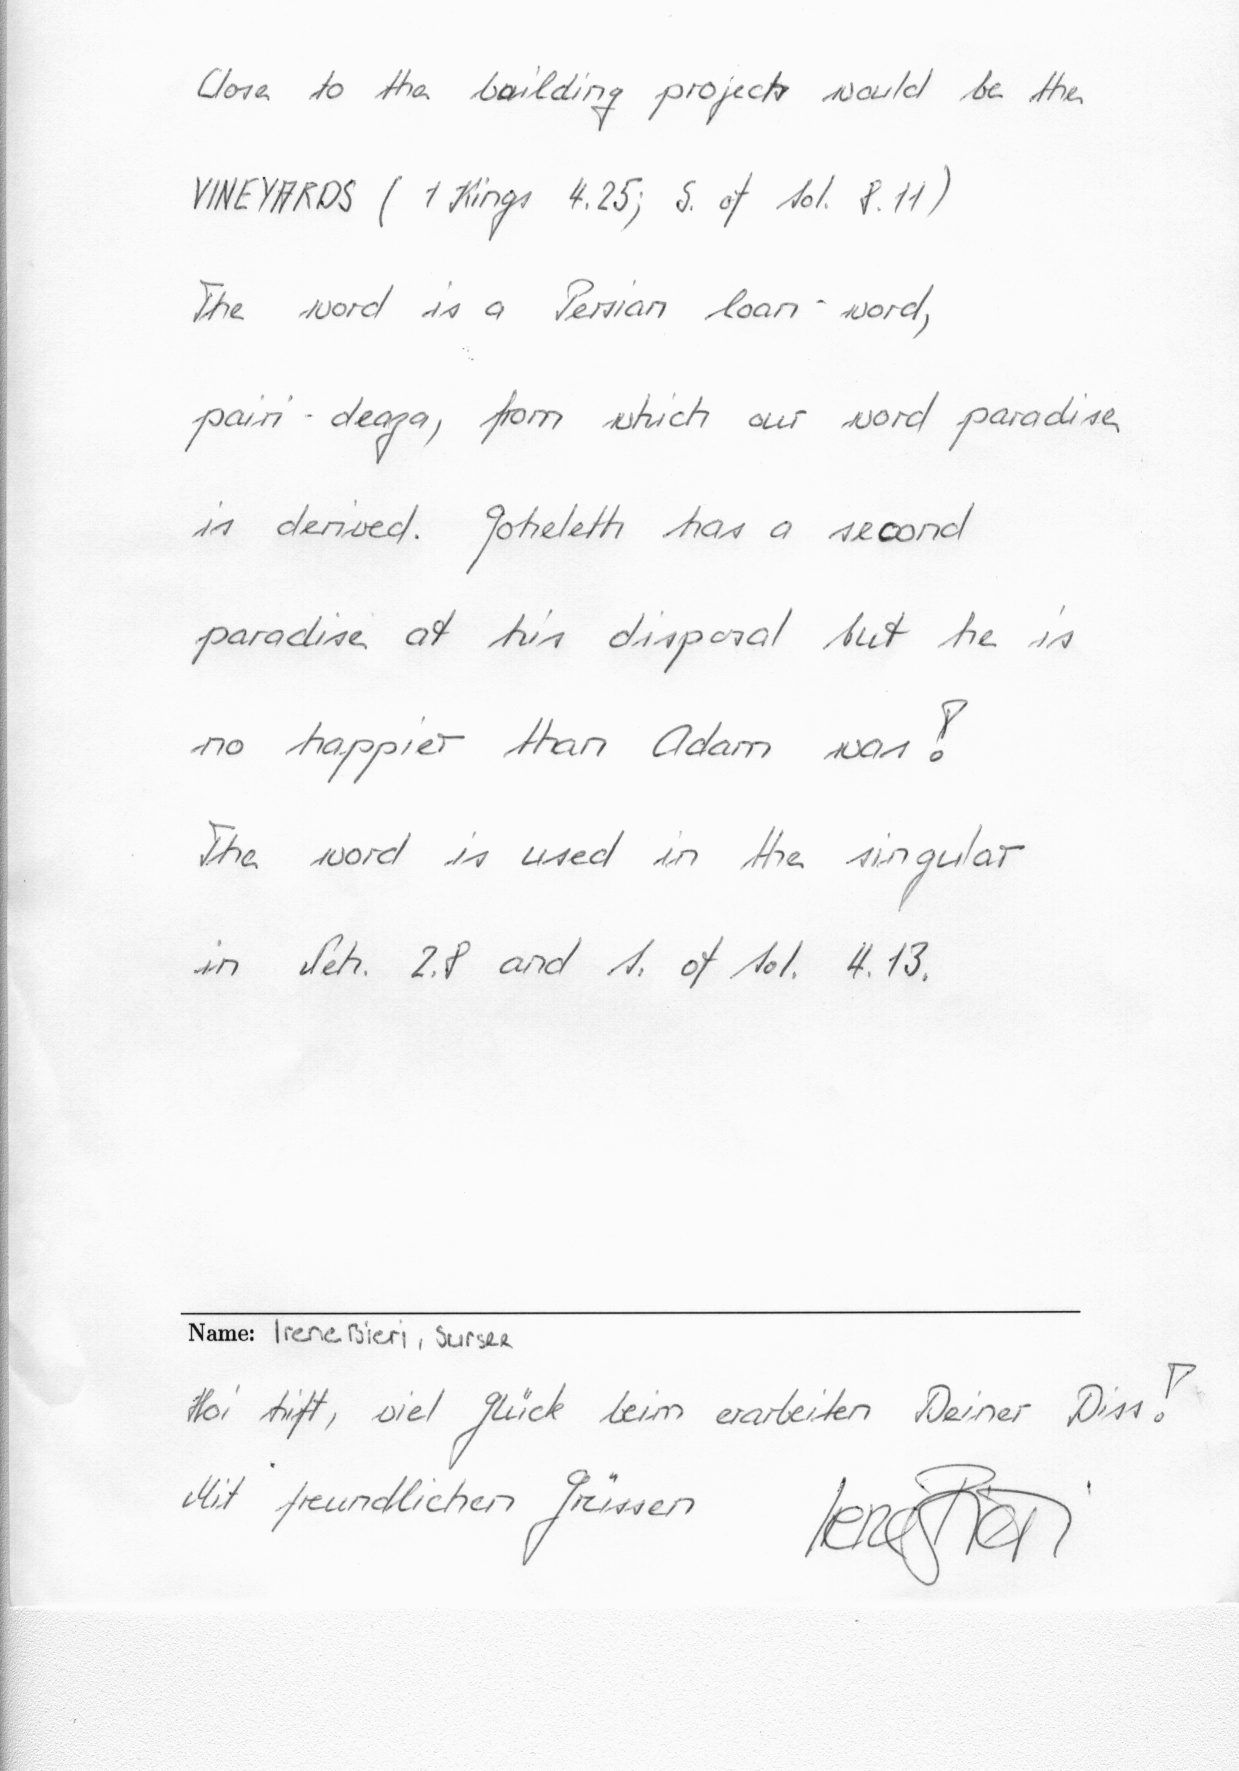 Close to the building projects would be the
VINEYARDS ( 1 Kings 4.25; S. of Sol. 8.11 )
The word is a Persian loan-word,
pairi-deaza, from which our word paradise
is derived. Qoheleth has a second
paradise at his disposal but he is
no happier than Adam was!
The word is used in the singular
in Neh. 2.8 and S. of Sol. 4.13.
Name: Irene Bieri, Sursee
Hoi, viel Glück beim erarbeiten Deiner Diss!
Mit freundlichen Grüssen Irene Bieri